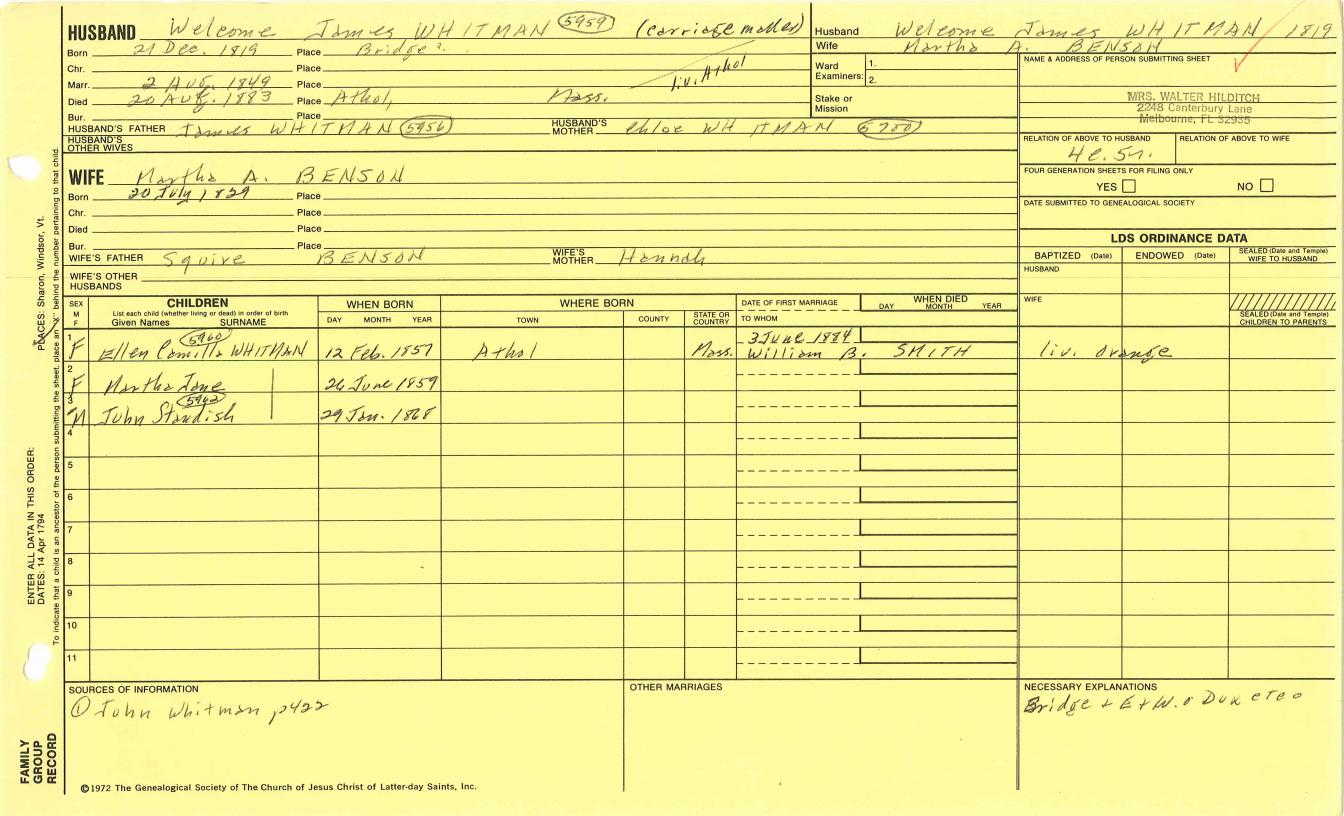 HUSBAND Welcome James WHITMAN 5959 (carriage maker)
Born 21 Dec. 1819 Place Bridge
Chr. Place liv. Athol
Marr. 2 Aug. 1849 Place
Died 20 Aug. 1883 Place Athol, Mass.
Bur. Place
HUSBAND'S FATHER James WHITMAN 5956 HUSBAND'S MOTHER Chloe WHITMAN
HUSBAND'S OTHER WIVES
WIFE Martha A. BENSON
Born 20 July 1829 Place
Chr. Place
Died Place
Bur. Place
WIFE'S FATHER Squire BENSON WIFE'S MOTHER Hannah
WIFE'S OTHER HUSBANDS
Husband Welcome James WHITMAN 1819
Wife Martha A. BENSON
Ward Examiners: 1.
2.
Stake or Mission
NAME & ADDRESS OF PERSON SUBMITTING SHEET
MRS. WALTER HILDITCH
2248 Canterbury Lane
Melbourne, FL 32935
RELATION OF ABOVE TO HUSBAND RELATION OF ABOVE TO WIFE
FOUR GENERATION SHEETS FOR FILING ONLY
YES NO
DATE SUBMITTED TO GENEALOGICAL SOCIETY
LDS ORDINANCE DATA
BAPTIZED (Date) ENDOWED (Date) SEALED (Date and Temple) WIFE TO HUSBAND
HUSBAND
WIFE
SEALED (Date and Temple) CHILDREN TO PARENTS
SEX M F
CHILDREN
List each child (whether living or dead) in order of birth
Given Names SURNAME
WHEN BORN
DAY MONTH YEAR
WHERE BORN
TOWN COUNTY STATE OR COUNTRY
DATE OF FIRST MARRIAGE
TO WHOM
WHEN DIED
DAY MONTH YEAR
1 F 5960 Ellen Camilla WHITMAN 12 Feb. 1857 Athol Mass. 3 June 1884 William B. SMITH liv. Orange
2 F Martha Jane 26 June 1859
3 M 5962 John Standish 29 Jan. 1868
4
5
6
7
8
9
10
11
SOURCES OF INFORMATION
① John Whitman p422
OTHER MARRIAGES
NECESSARY EXPLANATIONS
Bridge + E + W.
©1972 The Genealogical Society of The Church of Jesus Christ of Latter-day Saints, Inc.
FAMILY GROUP RECORD
ENTER ALL DATA IN THIS ORDER:
DATES: 14 Apr 1794
PLACES: Sharon, Windsor, Vt.
To indicate that a child is an ancestor of the person submitting the sheet, place an "X" behind the number pertaining to that child.